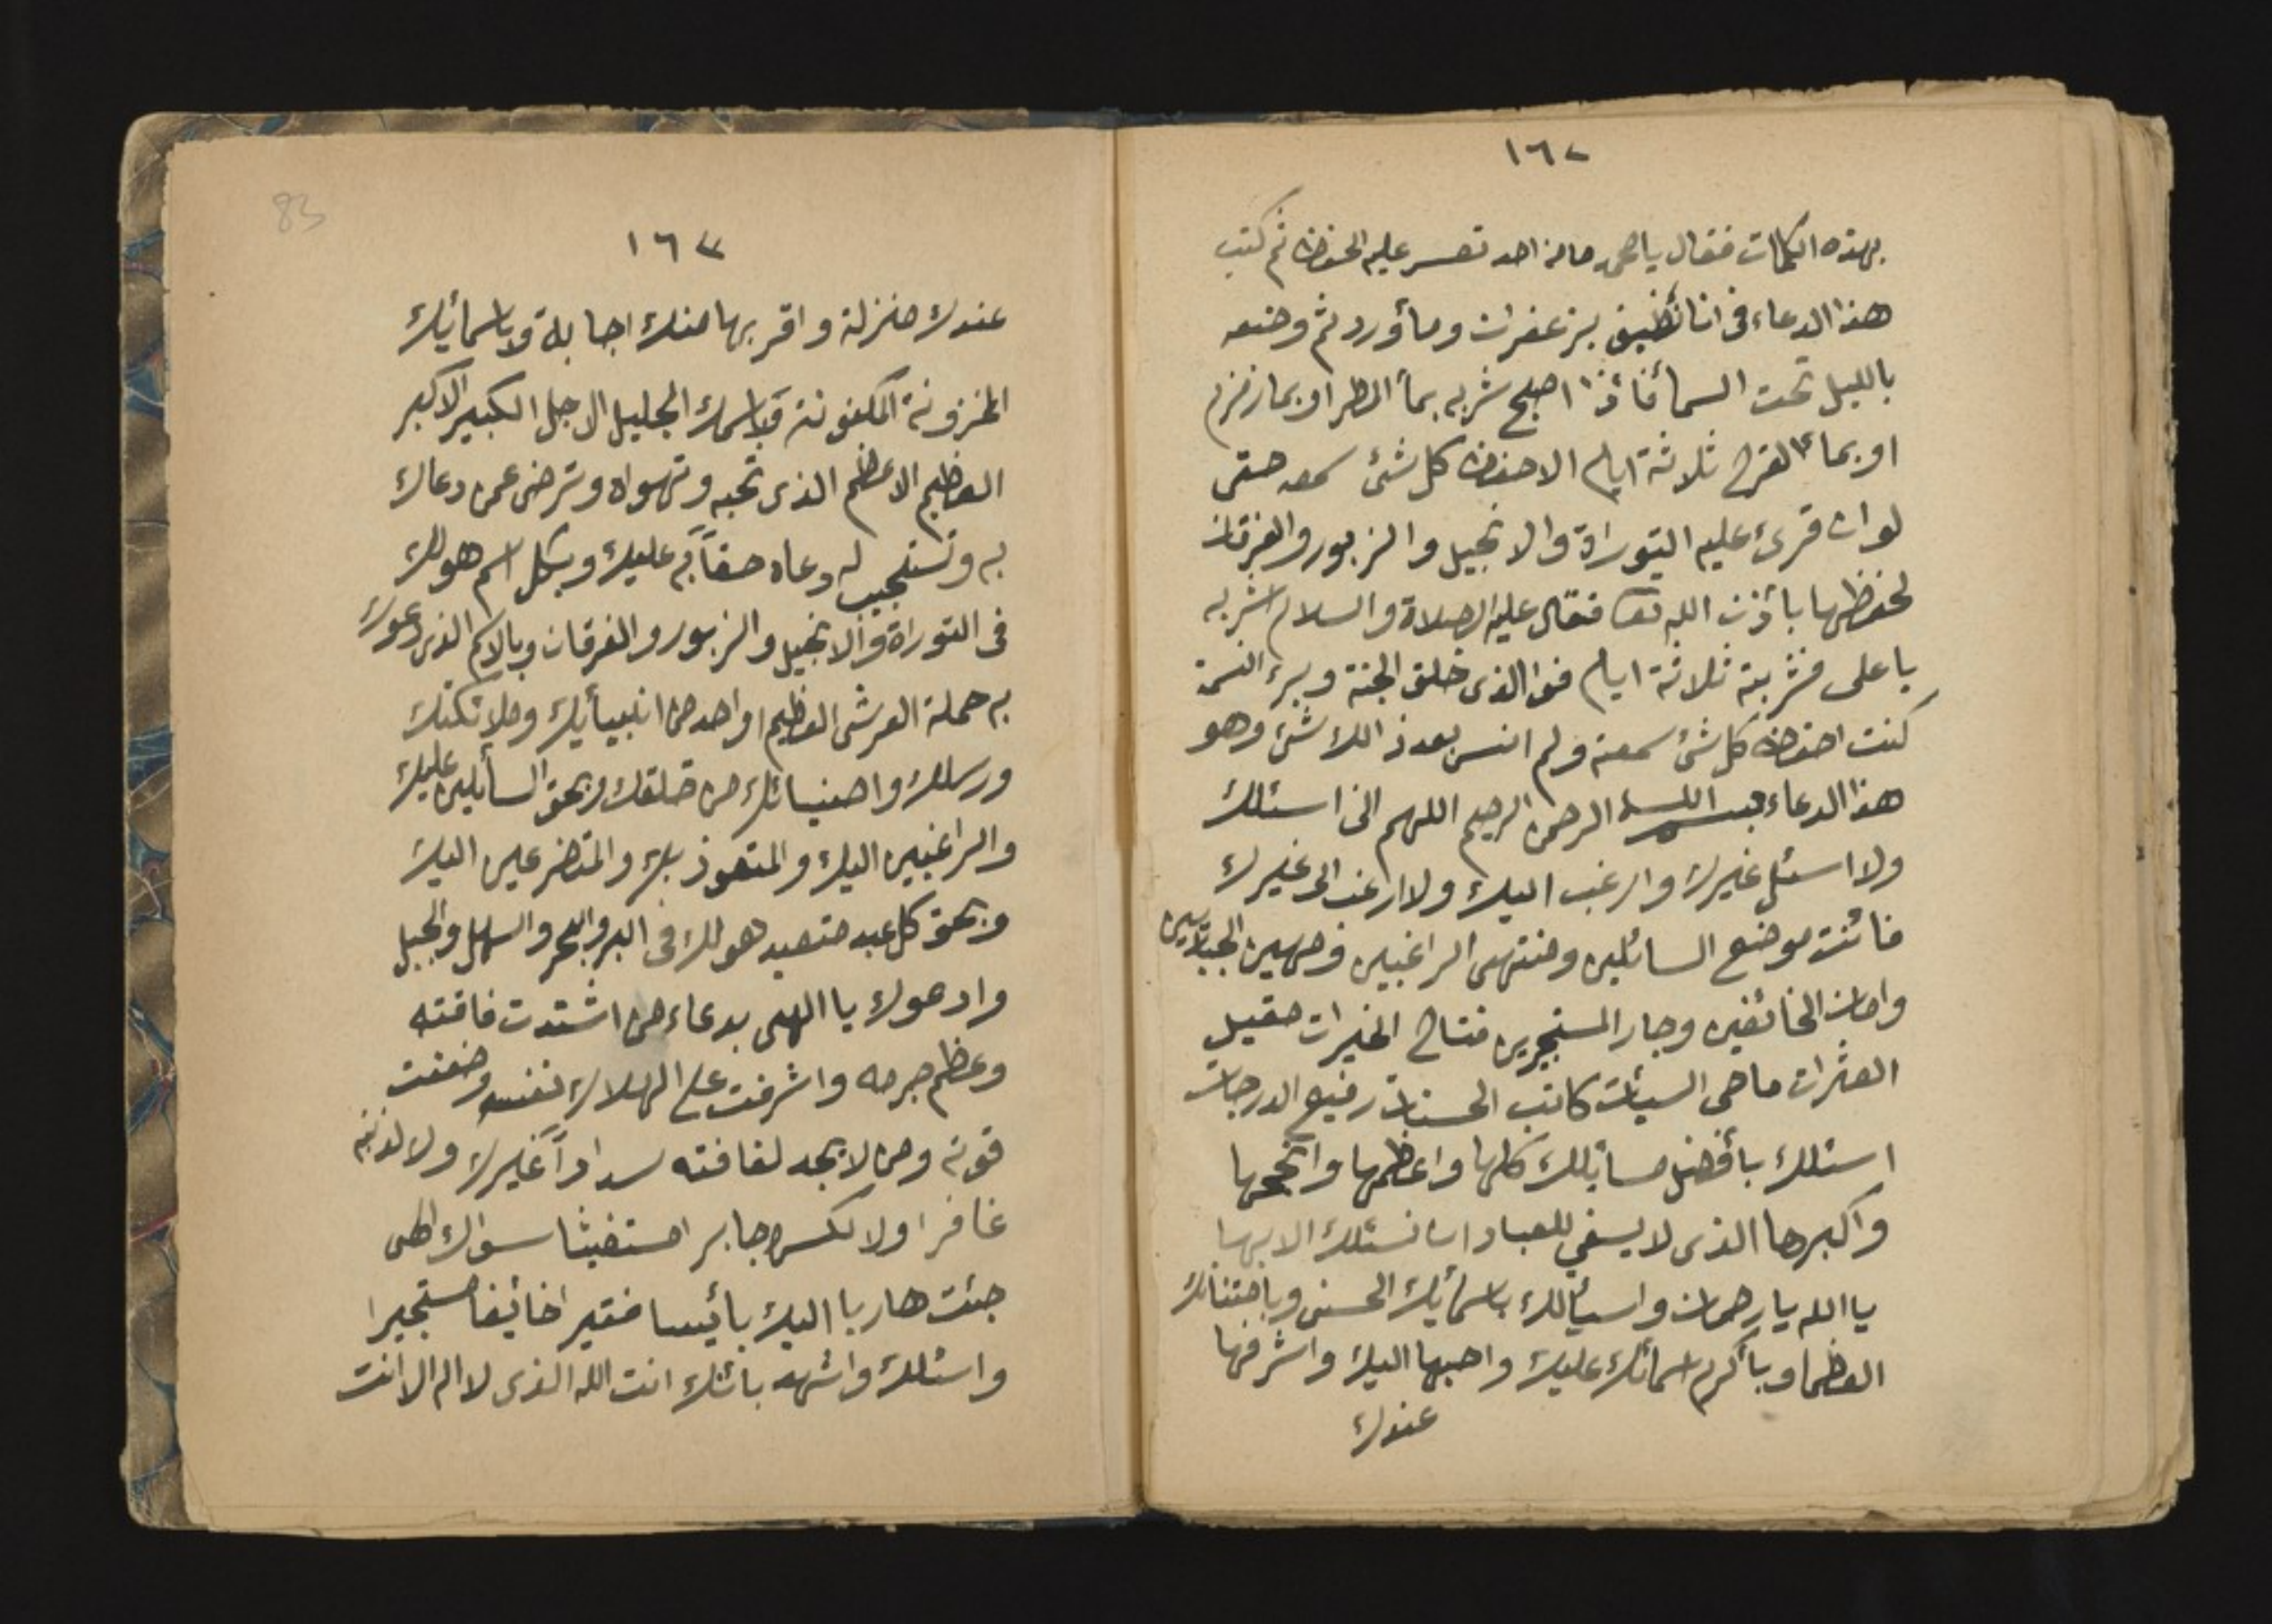 ١٦٢
بهذه الكلمات فقال يا محمد ما من احد تعسر عليه الحفظ ثم كتب
هذا الدعاء فى انا نظيف بزعفران ومأورد ثم وضعه
بالليل تحت السمأ فأذا اصبح شربه بمأ المطر او بما زمزم
او بما القرح ثلاثة ايام الا حفظ كل شئ سمعه حتى
لو ان قرئ عليه التوراة والانجيل والزبور والفرقان
لحفظها بأذن الله تعا فقال عليه الصلاة والسلام اشربه
يا على فشربته ثلاثة ايام فوا الذى خلق الجنة وبرء النسمة
كنت احفظ كل شئ سمعته ولم انس بعد ذالك شئ وهو
هذا الدعاء بسم الله الرحمن الرحيم اللهم انى اسئلك
ولا اسئل غيرك وارغب اليك ولا ارغب الى غيرك
فأنت موضع السائلين ومنتهى الراغبين ومهين الجبارين
وامان الخائفين وجار المستجيرين فتاح الخيرات مقيل
العثرات ماحى السيأت كاتب الحسنات رفيع الدرجات
اسئلك بأفضل مسائلك كلها واعظمها وانجحها
واكبرها الذى لا يسغي للعباد ان نسئلك الا بها
يا الله يا رحمان واسيألك باسمأيك الحسنى وبامتنانك
العظما وبأكرم اسمائك عليك واحبها اليك واشرفها
عندك
83
١٦٣
عندك منزلة واقربها منك اجابة وباسمائيك
المخزونة المكنونة وباسمك الجليل الاجل الكبير الاكبر
العظيم الاعظم الذى تحبه وتهواه وترضى عمن دعاك
به وتستجيب له دعاه حقاً به عليك وبكل اسم هو لك
فى التوراة والانجيل والزبور والفرقان وبالاسم الذى دعوك
به حملة العرش العظيم او احد من انبيأيك وملائكتك
ورسلك واصفيائك من خلقك وبحق السأيلين عليك
والراغبين اليك والمتعوذ بك والمتضرعين اليك
وبحق كل عبد متعبد هو لك فى البر والبحر والسهل والجبل
وادعوك يا الهى بدعاء من اشتدت فاقته
وعظم جرمه واشرفت على الهلاك نفسه وضعفت
قوته ومن لا يجد لفاقته سداداً غيرك ولا لذنبه
غافرا ولا لكسره جابر امستغيثا سواك الهى
جئت هاربا اليك بائيسا فقير اخائيفا مستجيرا
واسئلك واشهد بانك انت الله الذى لا اله الا انت